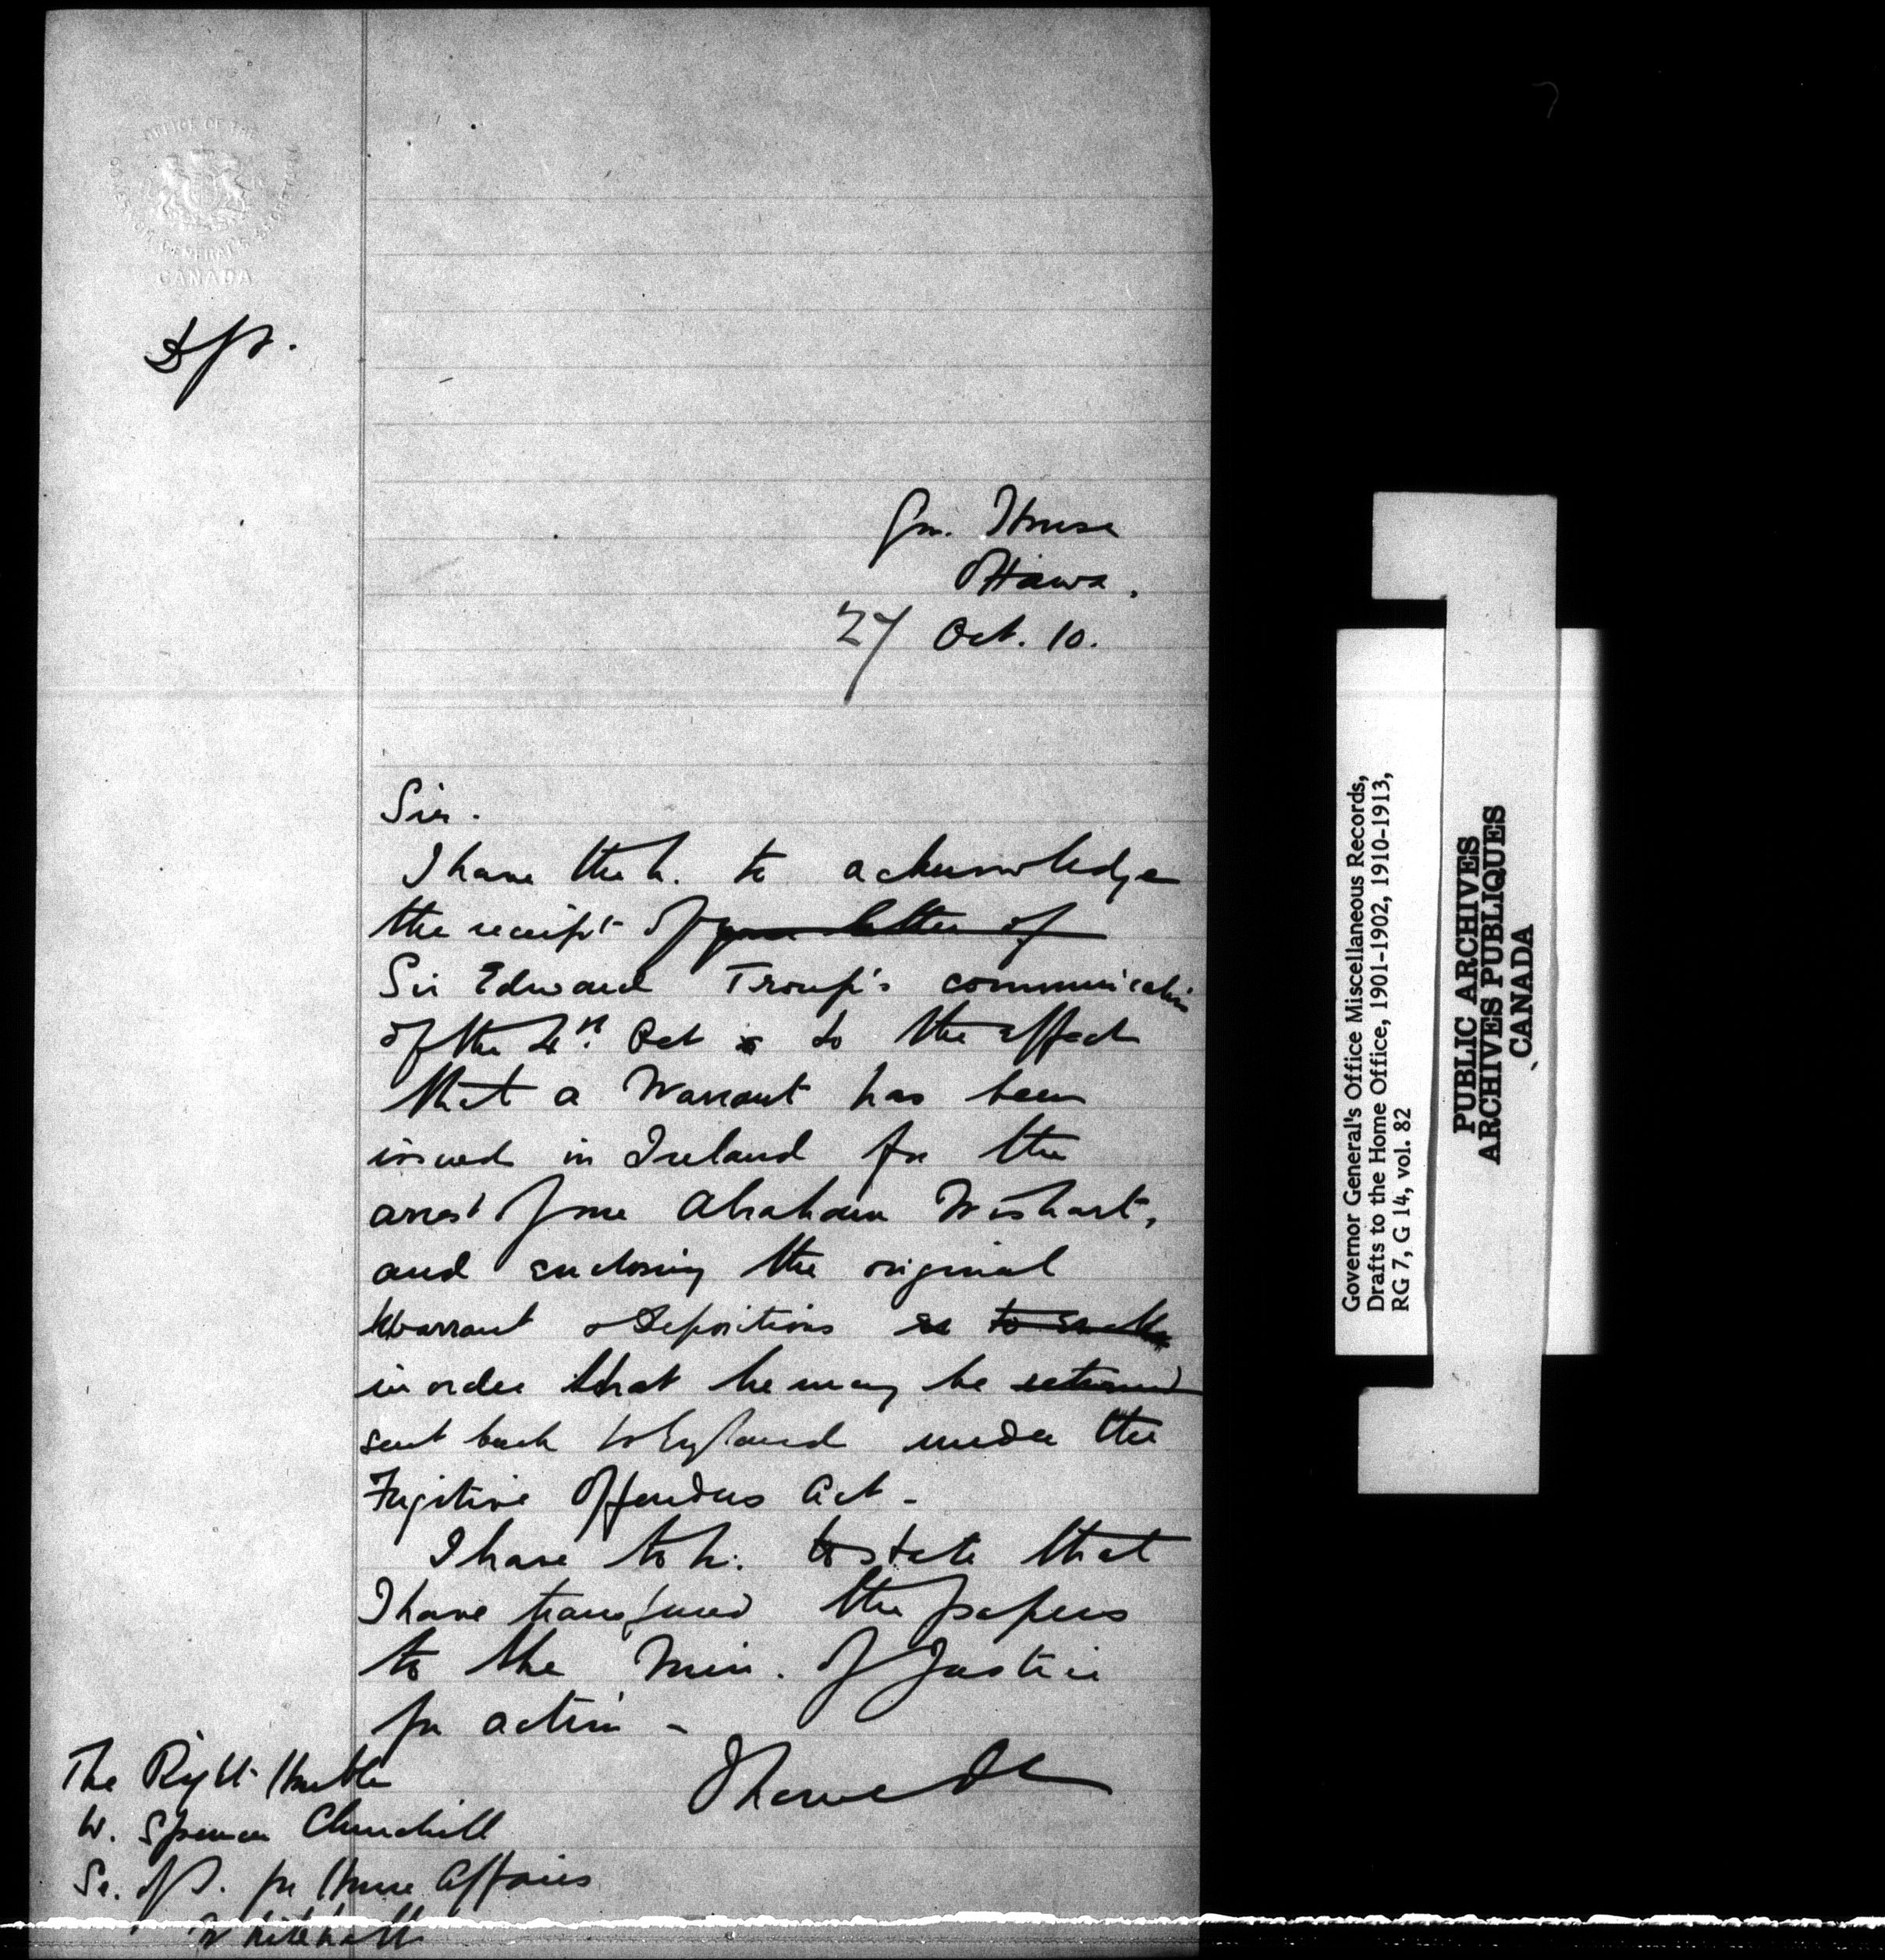 OFFICE OF THE
GOVERNOR GENERAL'S SECRETARY
CANADA
Dft.
Gov. House
Ottawa.
27 Oct. 10.
Sir.
I have the h. to acknowledge
the receipt of your letter of
Sir Edward Troup's communication
of the 4th. Oct to the effect
that a Warrant has been
issued in Ireland for the
arrest of one Abraham Wishart,
and enclosing the original
Warrant & Depositions to
in order that he may be returned
sent back to England under the
Fugitive Offenders Act -
I have to h. to state that
I have transferred the papers
to the Min. of Justice
for action -
I have &c
The Right Honble
W. Spencer Churchill
Se. of S. for Home Affairs
Whitehall
Governor General's Office Miscellaneous Records,
Drafts to the Home Office, 1901-1902, 1910-1913,
RG 7, G 14, vol. 82
PUBLIC ARCHIVES
ARCHIVES PUBLIQUES
CANADA